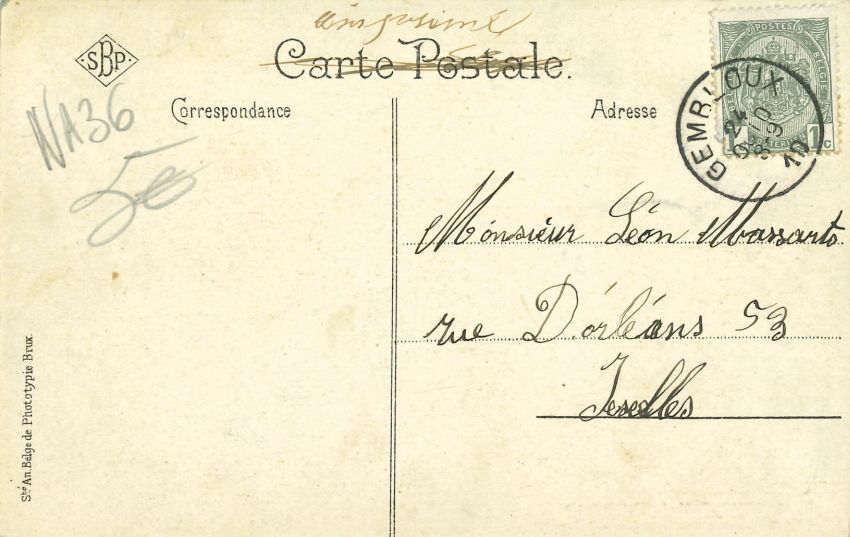 SBP
Carte Postale.
Correspondance
Adresse
POSTES
BELGIË
1 1 c
GEMBLOUX
24
10
NA36
50
Monsieur Léon Massarts
rue D'orléans 53
Ixelles
Sté An. Belge de Phototypie Brux.